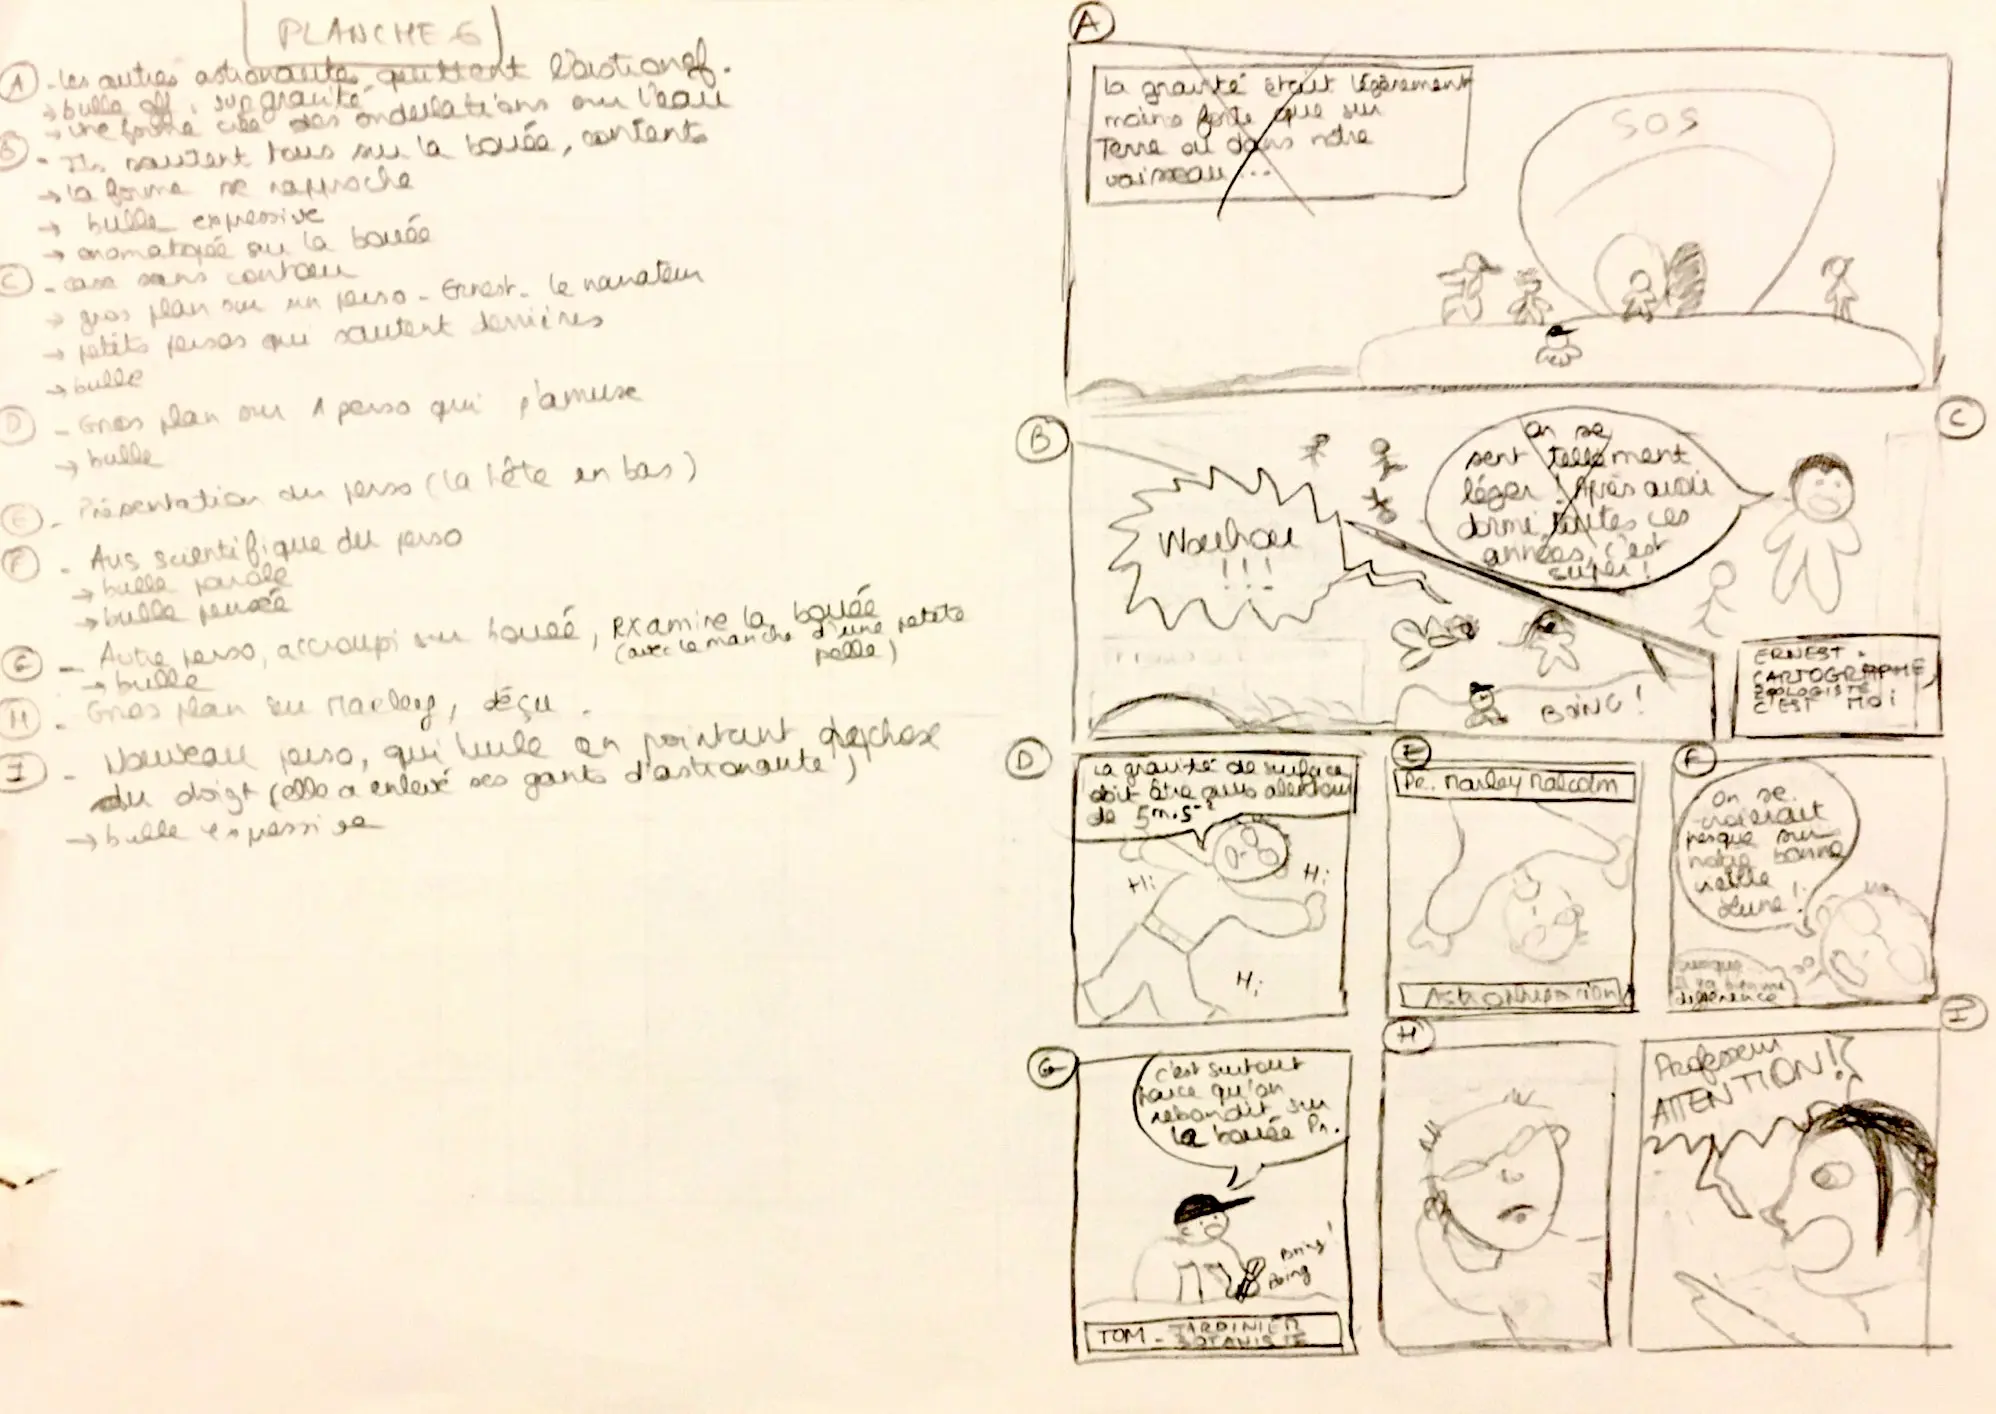 PLANCHE 6
A - Les autres astronautes quittent l'astronef.
→ bulle off : sur gravité
→ une forme crée des ondulations sur l'eau
B - Ils sautent tous sur la bouée, contents
→ la forme se rapproche
→ bulle expressive
→ onomatopée sur la bouée
C - case sans contour
→ gros plan sur un perso - Ernest - le narrateur
→ petits persos qui sautent derrières
→ bulle
D - Gros plan sur 1 perso qui s'amuse
→ bulle
E - Présentation du perso (la tête en bas)
F - Avis scientifique du perso
→ bulle parole
→ bulle pensée
G - Autre perso, accroupi sur bouée, examine la bouée
(avec le manche d'une petite
pelle)
→ bulle
H - Gros plan sur Marley, déçu.
I - Nouveau perso, qui hurle en pointant qqchose
du doigt (elle a enlevé ses gants d'astronaute)
→ bulle expressive
A
La gravité était légèrement
moins forte que sur
Terre ou dans notre
vaisseau...
SOS
B
Wouhou
!!!
BOING!
C
On se
sent tellement
léger ! Après avoir
dormi toutes ces
années, c'est
super !
ERNEST -
CARTOGRAPHE,
ZOOLOGISTE
C'EST MOI
D
La gravité de surface
doit être aux alentours
de 5 m.s-2
Hi
Hi
Hi
E
Pr. Marley Malcolm
F
On se
croirait
presque sur
notre bonne
vieille
Lune !
différence
G
C'est surtout
parce qu'on
rebondit sur
la bouée Pr.
Boing!
Boing
TOM - JARDINIER
BOTANISTE
H
I
Professeur
ATTENTION!